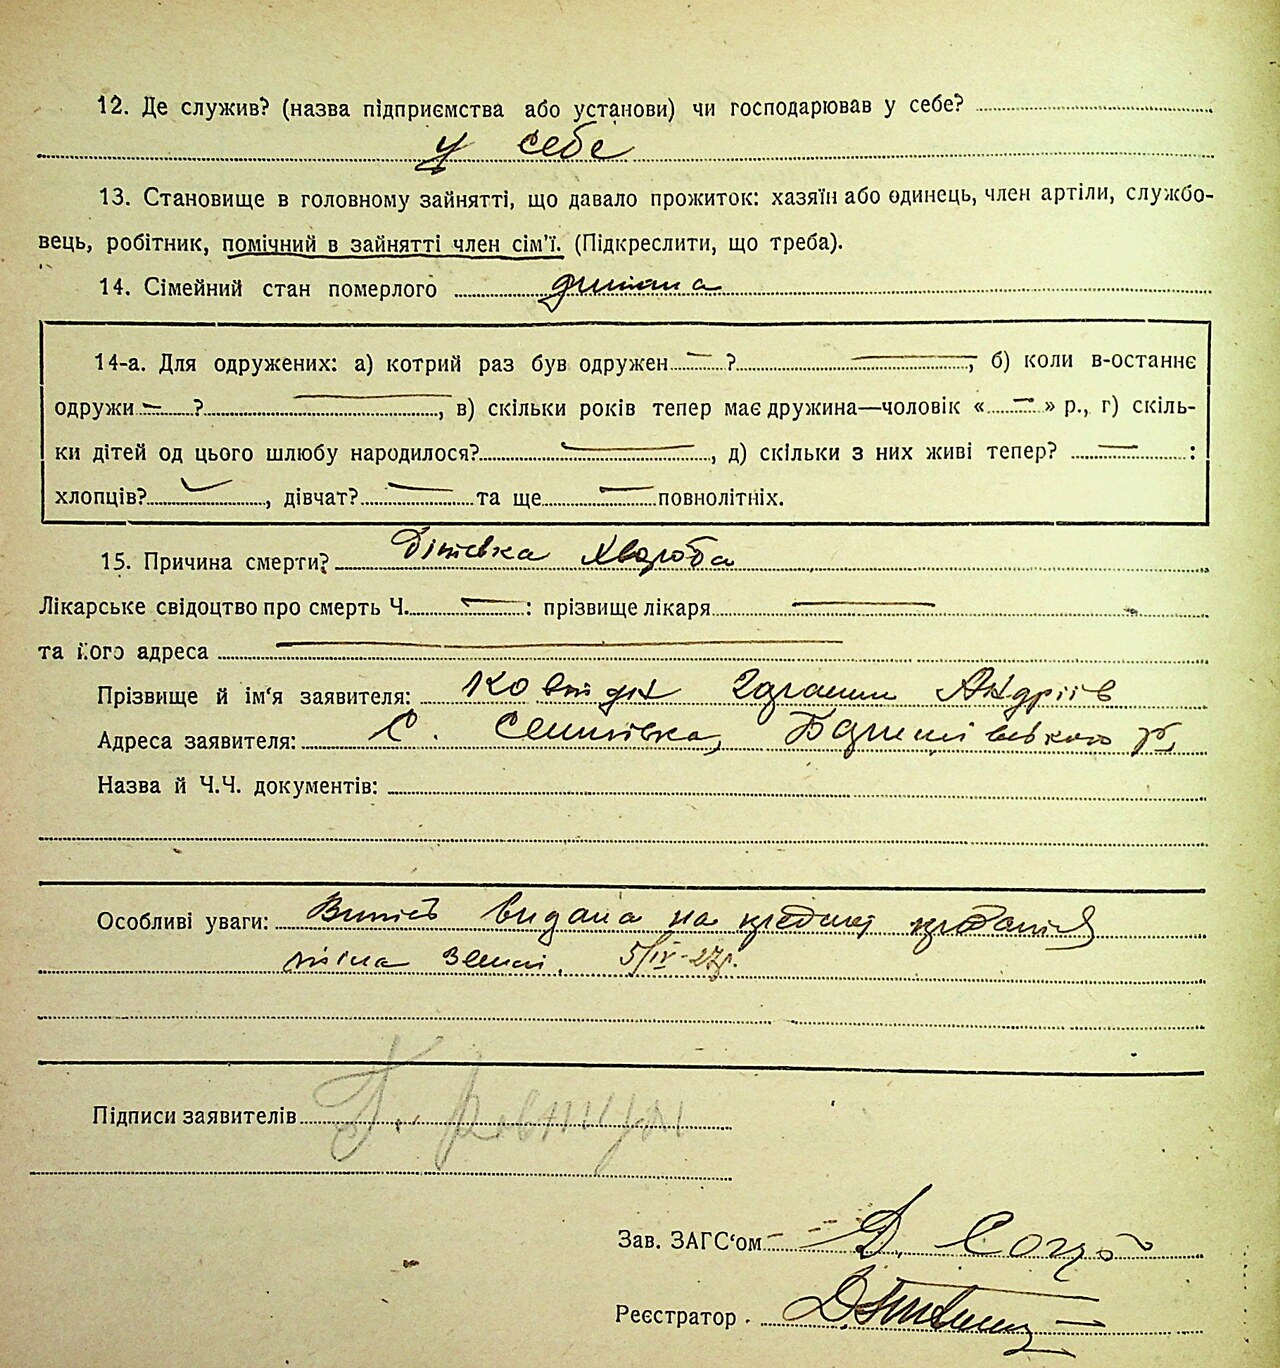 12. Де служив? (назва підприємства або установи) чи господарював у себе?
у себе
13. Становище в головному зайнятті, що давало прожиток: хазяїн або одинець, член артіли, службо-
вець, робітник, помічний в зайнятті член сім'ї. (Підкреслити, що треба).
14. Сімейний стан померлого дитина
14-а. Для одружених: а) котрий раз був одружен — ? —, б) коли в-останнє
одружи — ? —, в) скільки років тепер має дружина—чоловік « — » р., г) скіль-
ки дітей од цього шлюбу народилося? —, д) скільки з них живі тепер? — :
хлопців? —, дівчат? — та ще — повнолітніх.
15. Причина смерти? Дітовка хвороба
Лікарське свідоцтво про смерть Ч. — : прізвище лікаря —
та його адреса —
Прізвище й ім'я заявителя: Андріїв
Адреса заявителя: С. р.
Назва й Ч.Ч. документів:
Особливі уваги: Випись видана на предмет
тіла землі. 5/IV-27р.
Підписи заявителів
Зав. ЗАГС'ом Д.
Реєстратор Д.